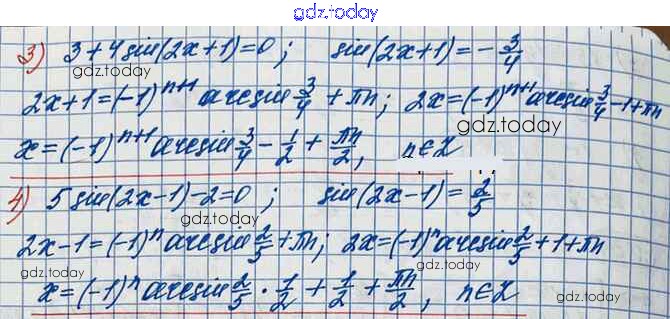 gdz.today
3) 3+4sin(2x+1)=0; sin(2x+1)=-3/4
gdz.today
2x+1=(-1)^{n+1} arcsin 3/4 + πn; 2x=(-1)^{n+1} arcsin 3/4 -1+πn
gdz.today
x=(-1)^{n+1} arcsin 3/4 - 1/2 + πn/2, n∈Z
gdz.today
4) 5sin(2x-1)-2=0; sin(2x-1)=2/5
gdz.today
2x-1=(-1)^n arcsin 2/5 + πn; 2x=(-1)^n arcsin 2/5 +1+πn
gdz.today
gdz.today
x=(-1)^n arcsin 2/5 · 1/2 + 1/2 + πn/2, n∈Z
gdz.today